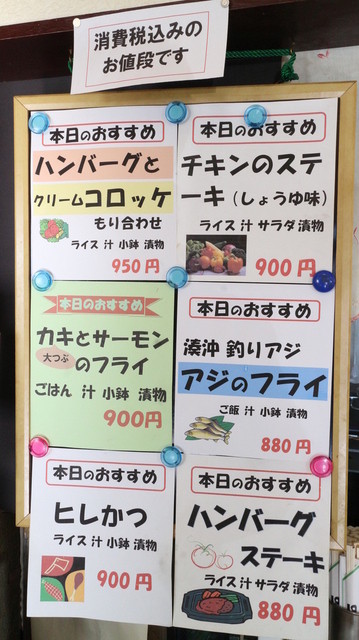 消費税込みの
お値段です
本日のおすすめ
ハンバーグと
クリームコロッケ
もり合わせ
ライス 汁 小鉢 漬物
950円
本日のおすすめ
チキンのステ
ーキ（しょうゆ味）
ライス 汁 サラダ 漬物
900円
本日のおすすめ
カキとサーモン
大つぶ
のフライ
ごはん 汁 小鉢 漬物
900円
本日のおすすめ
湊沖 釣りアジ
アジのフライ
ご飯 汁 小鉢 漬物
880円
本日のおすすめ
ヒレかつ
ライス 汁 小鉢 漬物
900円
本日のおすすめ
ハンバーグ
ステーキ
ライス 汁 サラダ 漬物
880円